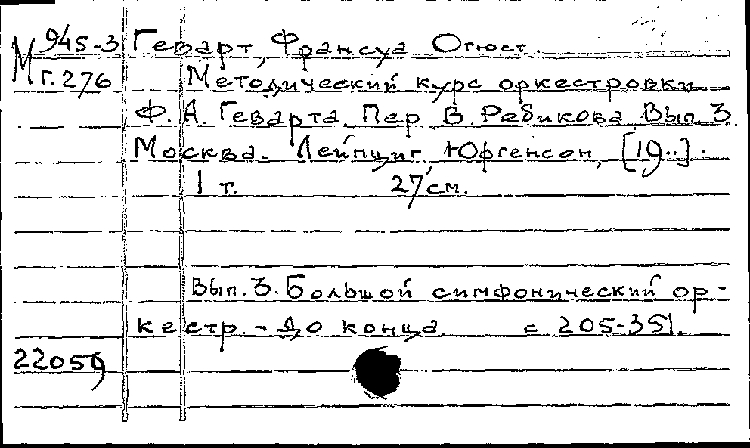 М 945-3 Геварт, Франсуа Огюст.
Г.276 Методический курс оркестровки
Ф. А. Геварта. Пер В. Ребикова Вып. 3
Москва - Лейпциг, Юргенсон, [19..].
1 т. 27 см.
Вып. 3. Большой симфонический ор-
кестр. - До конца. с 205-351.
22059